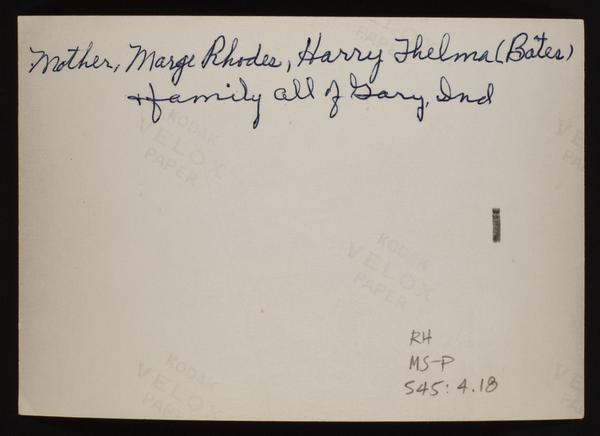 Mother, Marge Rhodes, Harry Thelma (Bates)
+ family all of Gary, Ind
KODAK
VELOX
PAPER
KODAK
VELOX
PAPER
RH
MS-P
545: 4.18
KODAK
VELOX